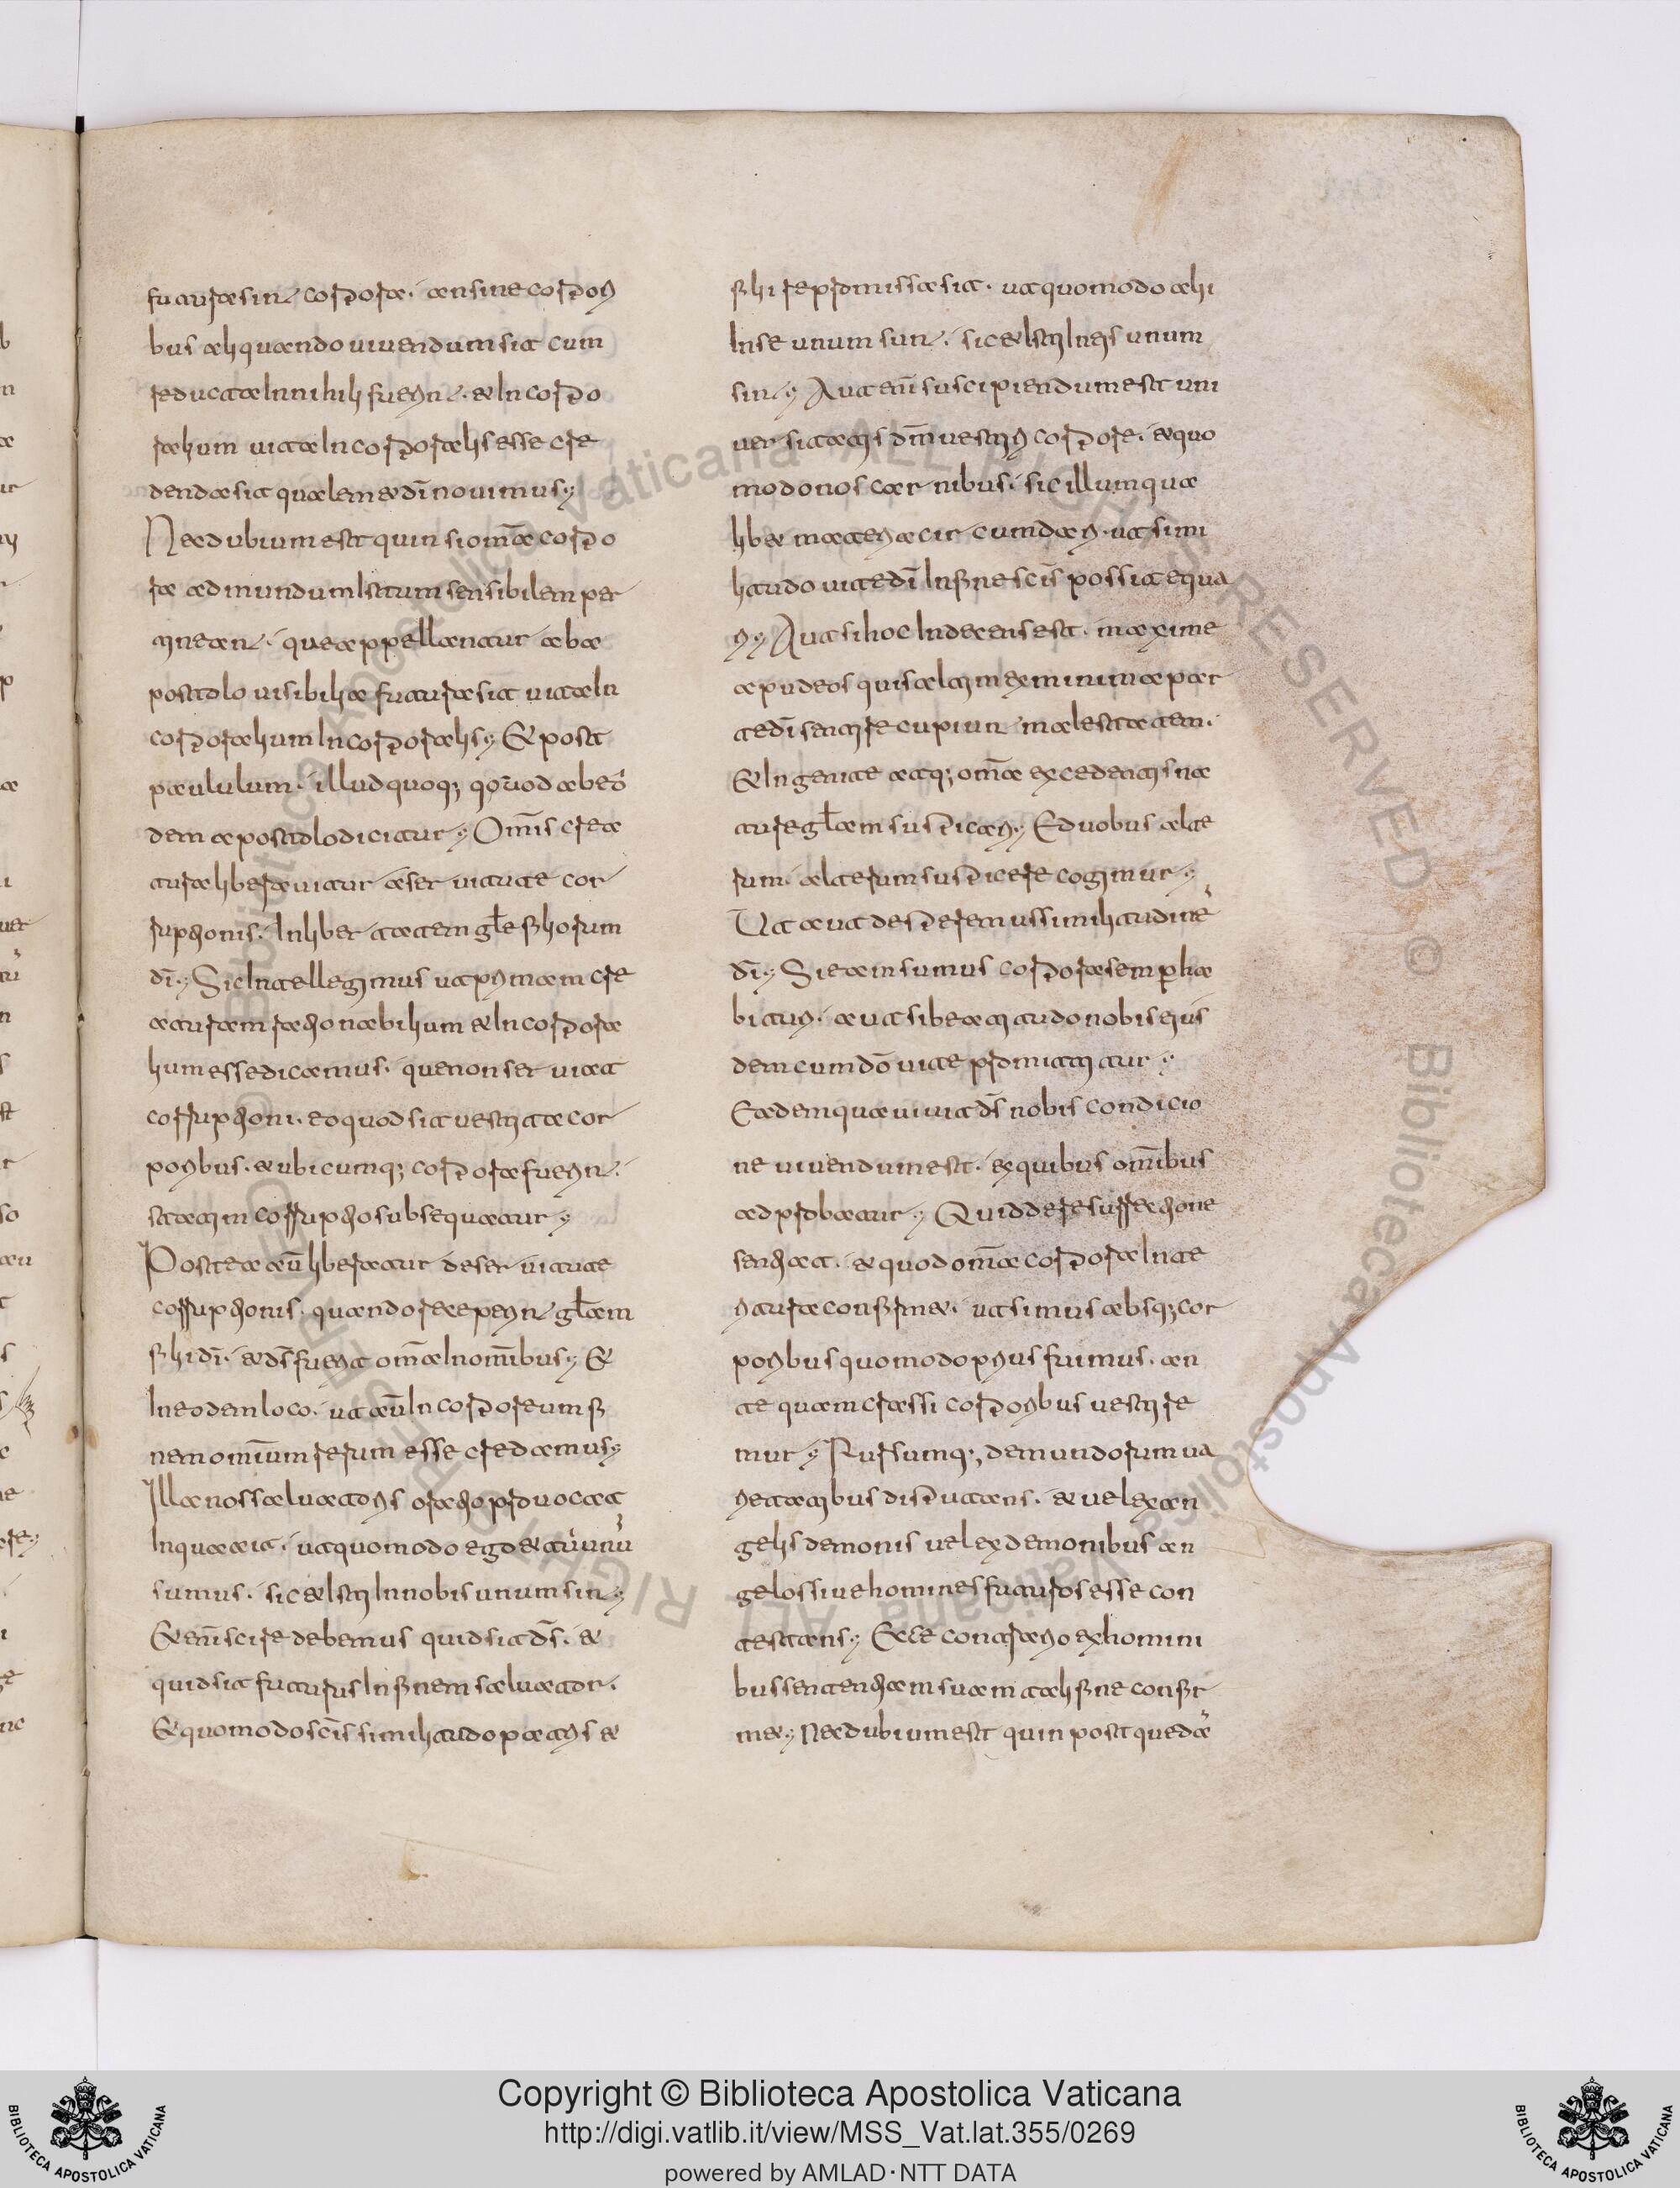 futura sint corpora. an sine corpori
bus aliquando uiuendum sit cum
reducta in nihili fuerint. et incorpo
ralium uita incorporalis esse cre
denda sit qualem et dī nouimus.
Nec dubium est quin si om̄a corpo
ra ad mundum istum sensibilem per
tineant. que appellantur ab a
postolo uisibilia futura sit uita in
corporalium incorporalis. Et post
paululum. illud quoq; quod ab eō
dem apostolo dicitur. Om̄is crea
tura liberauitur a seruitute cor
ruptionis. in libertatem gl̄e filiorum
dī. Sic intellegimus ut primam cre
aturam rationabilium et incorpora
lium esse dicamus. que non seruiat
corruptioni. eo quod sit uestita cor
poribus. et ubicumq; corpora fuerint.
statim corruptio subsequatur.
Postea aū liberatur de seruitute
corruptionis. quando receperint gl̄am
filii dī. et ds̄ fuerit om̄a in om̄ibus. Et
in eodem loco. ut aū incorporeum fi
nem om̄ium rerum esse credamus.
Illa nos saluatoris oratio prouocat
in qua ait. ut quomodo ego et tu unū
sumus. sic et isti in nobis unum sint.
Et enī scire debemus quid sit ds̄. et
quid sit futurus in finem saluator.
Et quomodo scīs similitudo patris et
filii repromissa sit. ut quomodo ahi
in se unum sunt. sic et isti in eis unum
sint. Aut enī suscipiendum est uni
uersitatis dm̄ uestiri corpore. et quo
modo nos carnibus. sic illum qua
libet materia circumdari. ut simi
litudo uite dī in fine scīs possit equa
ri. Aut si hoc indecens est. maxime
apud eos qui saltim ex minima par
te dī sentire cupiunt maiestatem.
Et ingenite atq; om̄a excedentis na
ture gl̄am suspicari. E duobus alte
rum. alterum suspicere cogimur.
Ut aut desperemus similitudinē
dī. si eadem sumus corpora semper ha
bituri. aut si beatitudo nobis eius
dem cum dō uite promittitur.
Eadem qua uiuit ds̄ nobis condicio
ne uiuendum est. ex quibus om̄ibus
adprobatur. Quid de resurrectione
sentiat. et quod om̄a corpora inte
ritura confirmet. ut simus absq; cor
poribus quomodo prius fuimus. an
te quam crassi corporibus uestire
mur. Rursumq; de mundorum ua
rietatibus disputans. et uel ex an
gelis demonis uel ex demonibus an
gelos siue homines futuros esse con
testans. Et e contrario ex homini
bus sententiam suam tali fine confir
met. Nec dubium est quin post quedā
Copyright © Biblioteca Apostolica Vaticana
http://digi.vatlib.it/view/MSS_Vat.lat.355/0269
powered by AMLAD·NTT DATA